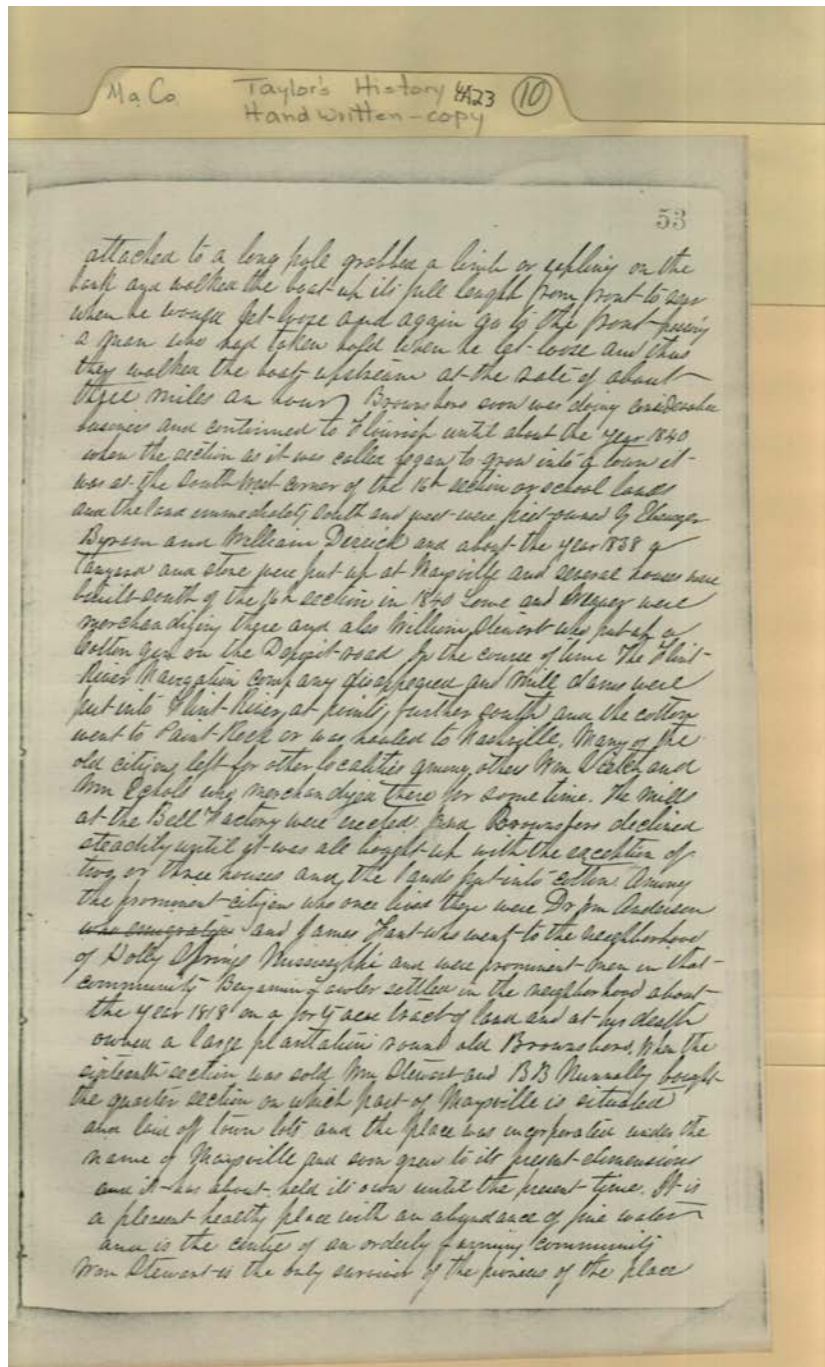 Ma Co. Taylor's History 4A23 10
Handwritten - copy
53
attached to a long pole grabbed a limb or sapling on the
bank and walked the boat up its full length from front to rear
when he would let loose and again go to the front passing
a man who had taken hold when he let loose and thus
they walked the boats upstream at the rate of about
three miles an hour) Brownsboro soon was doing considerable
business and continued to flourish until about the year 1840
when the section as it was called began to grow into a town it
was at the South West corner of the 16th section or school lands
and the land immediately south and west were first owned by Ebenezer
Byram and William Derrick and about the year 1838 a
Tanyard and store were put up at Maysville and several houses were
built south of the 16th section in 1840 Lowe and were
merchandizing there and also William Stewart who put up a
Cotton gin on the Deposit road In the course of time The Flint
River Navigation company disappeared and mill dams were
put into Flint River, at points, further south and the cotton
went to Paint Rock or was hauled to Nashville. Many of the
old citizens left for other localities among others Wm and
Wm Echols who merchandized there for some time. The mills
at the Bell Factory were erected and Brownsboro declined
steadily until it was all bought up with the exception of
two or three houses and the lands put into cotton Among
the prominent citizens who once lived there were Dr Jm Anderson
who emigrated and James Fant who went to the neighborhood
of Holly Springs Mississippi and were prominent men in that
community Benjamin Lawler settled in the neighborhood about
the year 1818 on a forty acre tract of land and at his death
owned a large plantation round old Brownsboro. When the
sixteenth section was sold Wm Stewart and BB Nunnally bought
the quarter section on which part of Maysville is situated
and laid off town lots and the place was incorporated under the
name of Maysville and soon grew to its present dimensions
and it has about held its own until the present time. It is
a pleasant healthy place with an abundance of fine water
and is the centre of an orderly farming community
Wm Stewart is the only survivor of the pioneers of the place